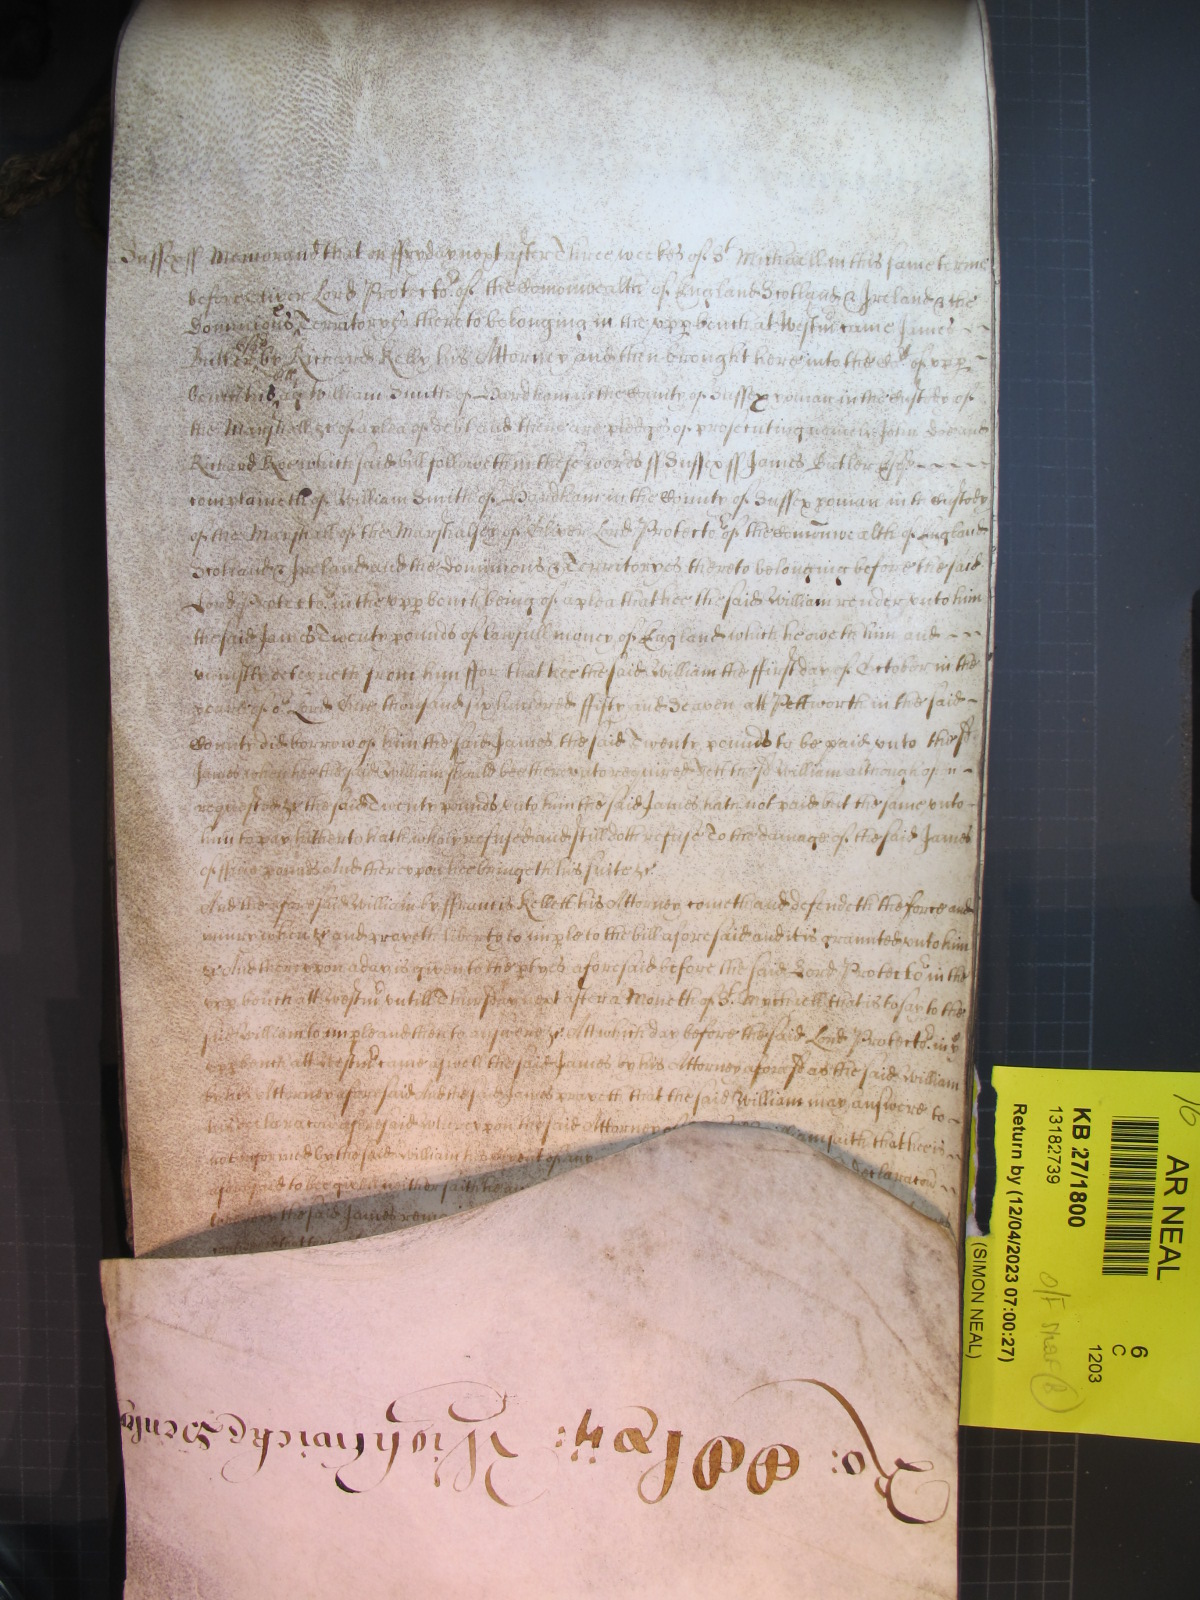 Sussex ss Memorand that on ffryday next after Three weekes of St Michaell in this same terme
before Oliver Lord Protector of the Comonwealth of England Scotland & Ireland & the
Dominions & Territoryes thereto belonging in the upp bench at Westmr came James
Butler Esqr by Richard Kelly his Attorney and then brought here into the Cort of upp
bench his bill agt William Smith of Pordham in the County of Sussex yoman in the Custody of
the Marshall &c of a plea of debt and there are pledges of prosecuting namely John Doe and
Richard Roe which said bill followeth in these words ss Sussex ss James Butler Esqr
complaineth of William Smith of Pordham in the County of Sussex yoman in the Custody
of the Marshall of the Marshalsey of Oliver Lord Protector of the Comonwealth of England
Scotland & Ireland and the Dominions & Territoryes thereto belonging before the said
Lord Protector in the upp bench being of a plea that hee the said William render unto him
the said James Twenty pounds of lawfull money of England which he oweth him and
uniustly deteyneth from him ffor that hee the said William the ffirst day of October in the
yeare of or Lord One thousand six hundred ffifty and Seaven att Pettworth in the said
County did borrow of him the said James the said Twenty pounds to be paid unto the sd
James when hee the said William should bee thereunto required Yett the sd William although often
requested &c the said Twenty pounds unto him the said James hath not paid but the same unto
him to pay hitherto hath wholy refused and still doth refuse To the damage of the said James
of ffive pounds And thereupon hee bringeth his suite &c
And the aforesaid William by ffrancis Kellett his Attorney cometh and defendeth the force and
iniury when &c and prayeth liberty to imple to the bill aforesaid and it is graunted unto him
&c And thereupon a day is given to the ptyes aforesaid before the said Lord Protector in the
upp bench att Westmr untill Thursday next after a Moneth of St Michaell that is to say to the
said William to imple and then to answere &c Att which day before the said Lord Protector in ye
upp bench att Westmr came aswell the said James by his Attorney aforesd as the said William
by his Attorney aforesaid And the said James prayeth that the said William may answere to
his declaracon aforesaid whereupon the said Attorney of William saith that hee is
not informed by the said William his client of any declaracon
aforesaid to bee given neither saith he any
the said James
Ro: Wightwicke Senty
AR NEAL
KB 27/1800
13182739
Return by (12/04/2023 07:00:27)
(SIMON NEAL)
6
C
1203